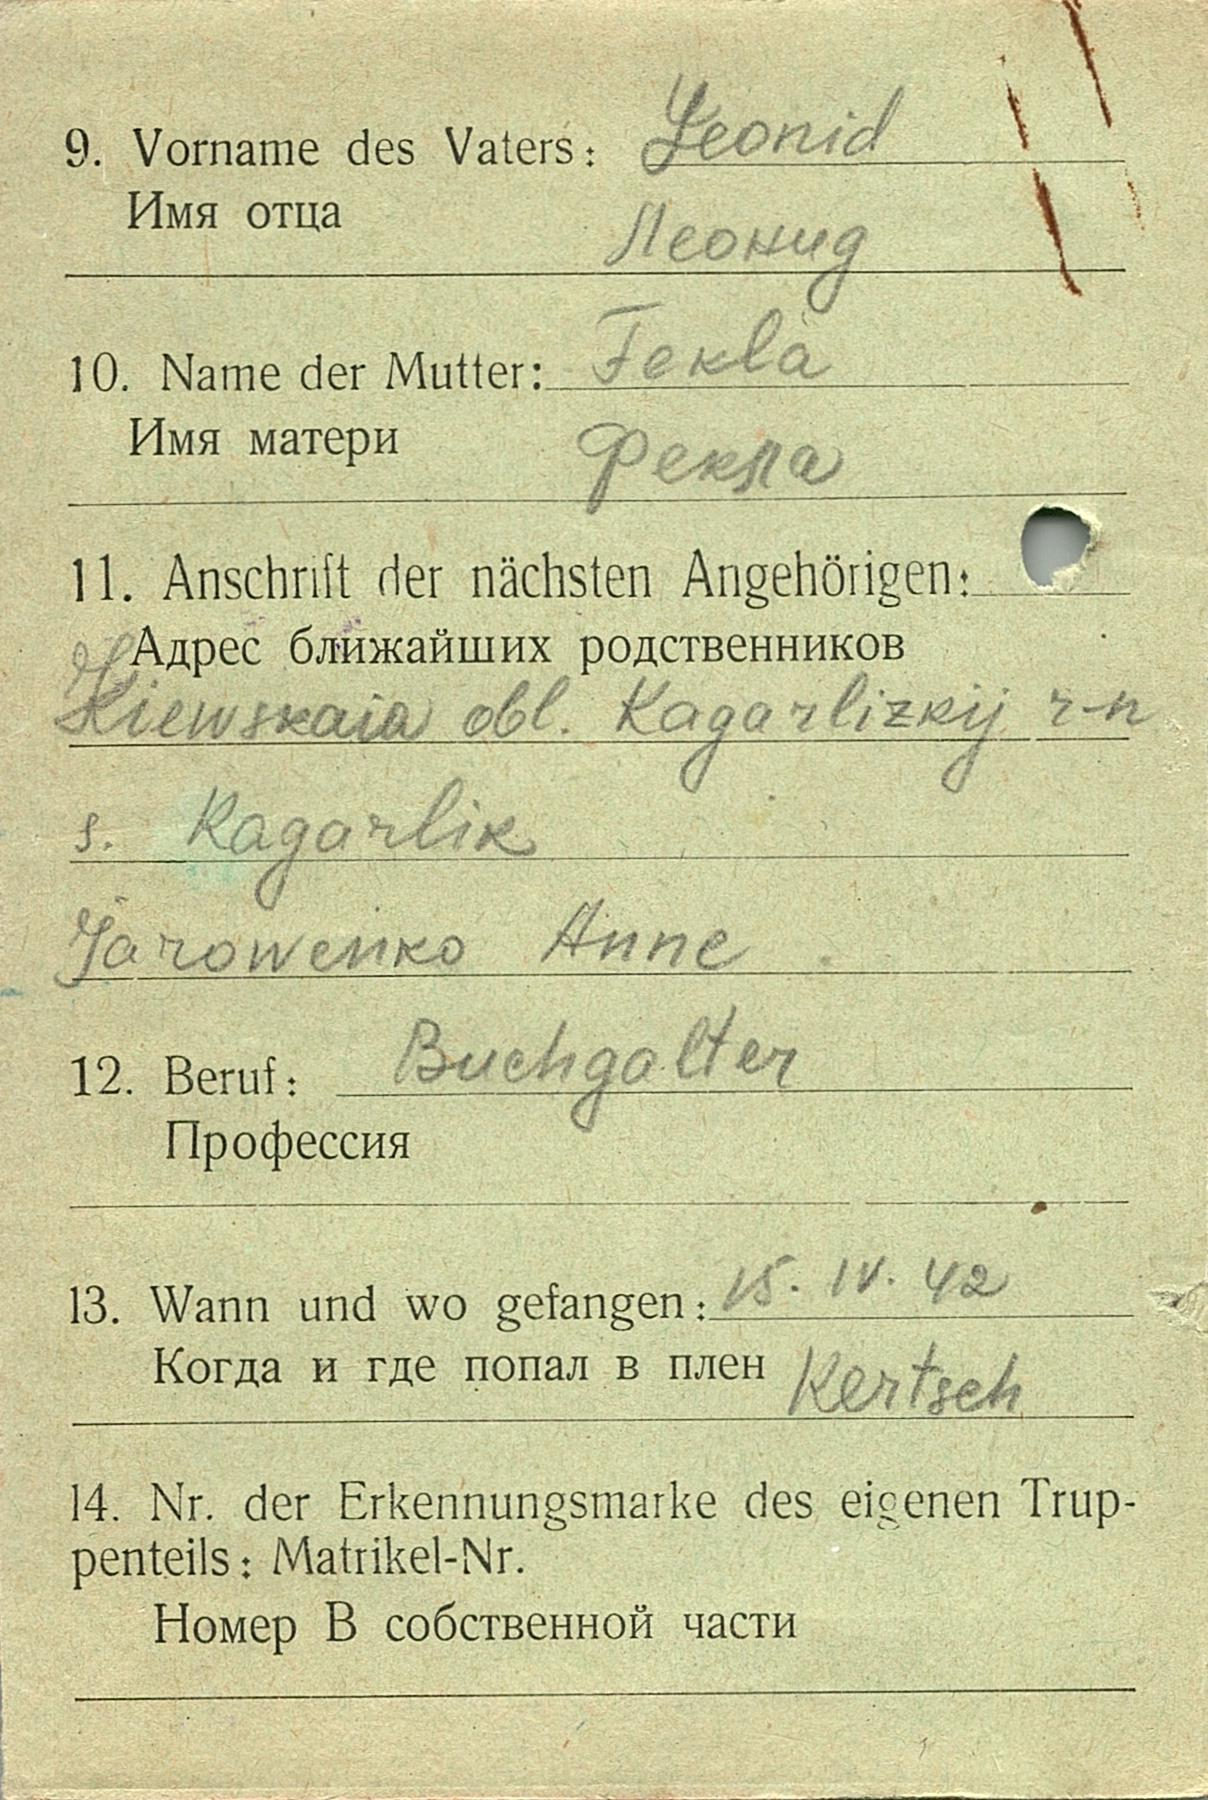 9. Vorname des Vaters: Leonid
Имя отца
Леонид
10. Name der Mutter: Fekla
Имя матери
Фекла
11. Anschrift der nächsten Angehörigen:
Адрес ближайших родственников
Kiewskaia obl. Kagarlizkij r-n
s. Kagarlik
Jarowenko Anne
12. Beruf: Buchgalter
Профессия
13. Wann und wo gefangen: 15. IV. 42
Когда и где попал в плен Kertsch
14. Nr. der Erkennungsmarke des eigenen Trup-
penteils: Matrikel-Nr.
Номер В собственной части